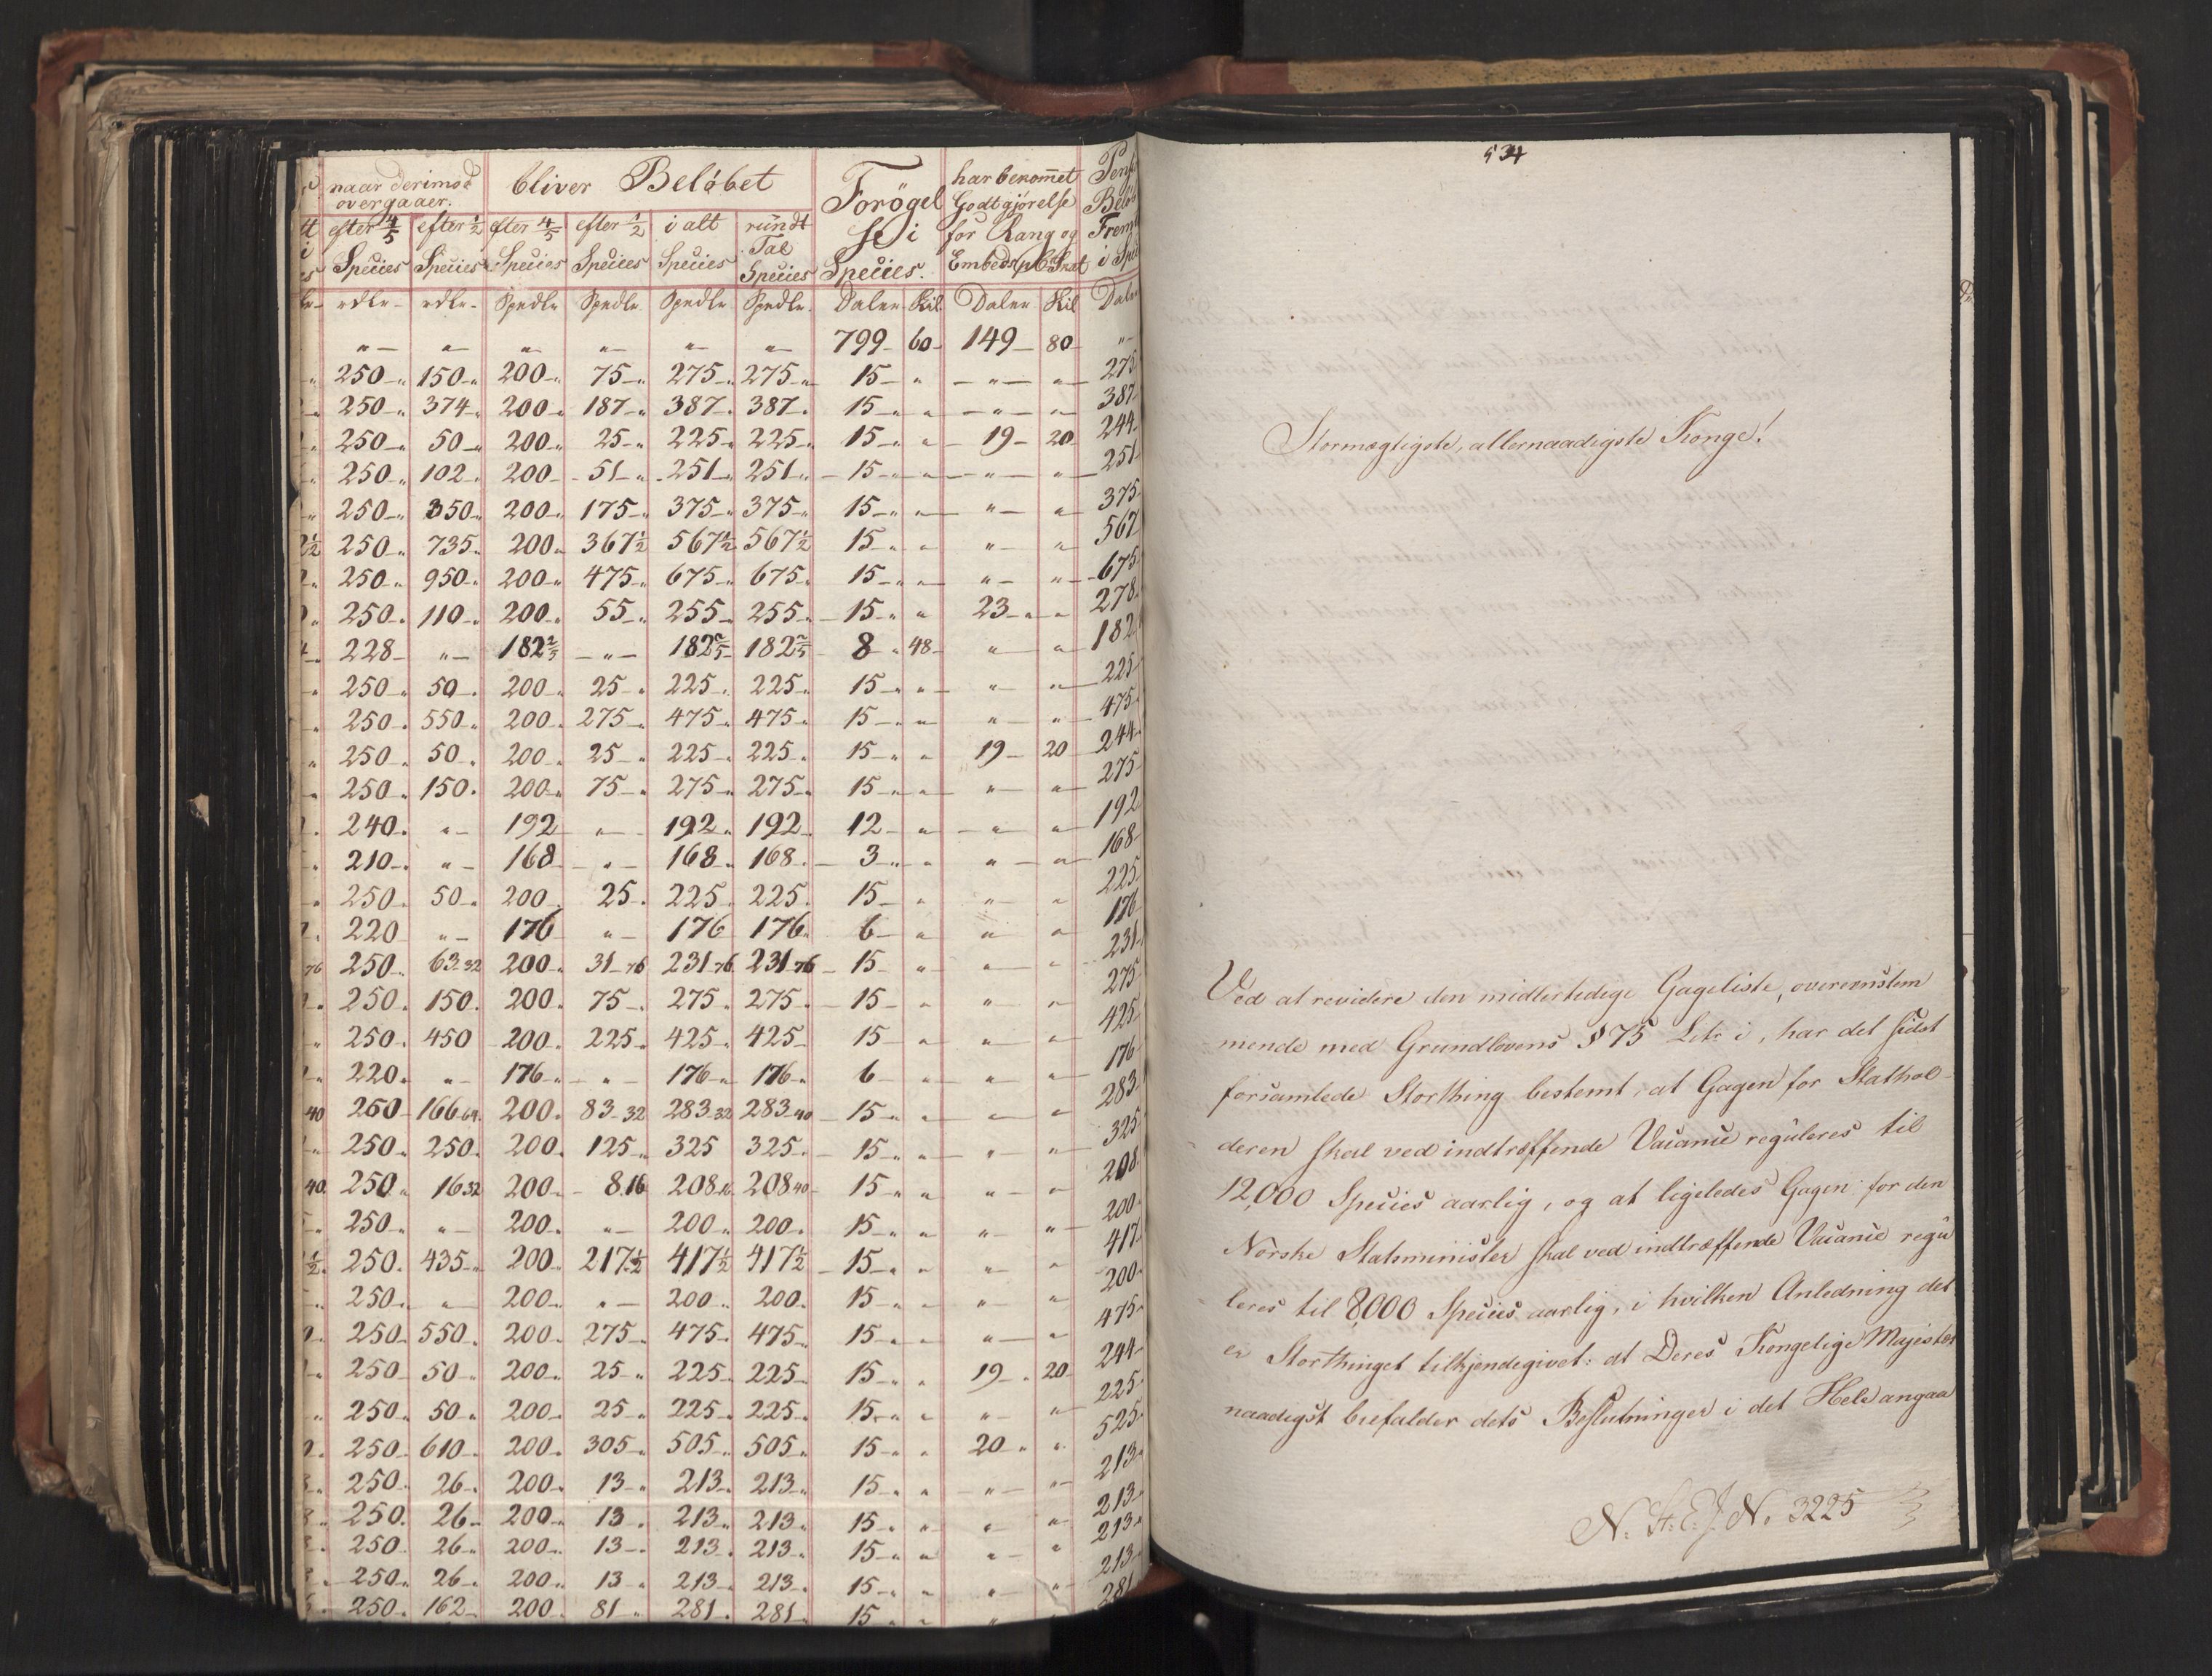 naar derimod
overgaaer.
bliver Beløbet
Forøgel
se i
Species.
har bekommet
Godtgjørelse
for Rang og
Embeds
efter 4/5 efter 1/2 efter 4/5 efter 1/2 i alt rundt
Tal
Species Species Species Species Species Species
rdlr rdlr Spedlr Spedlr Spedlr Spedlr Daler Skil Daler Skil Daler
" " " " " " 799 60 149 80 "
250 150 200 75 275 275 15 " " " 275
250 374 200 187 387 387 15 " " " 387
250 50 200 25 225 225 15 " 19 20 244
250 102 200 51 251 251 15 " " " 251
250 350 200 175 375 375 15 " " " 375
1/2 250 735 200 367 1/2 567 1/2 567 1/2 15 " " " 567
250 950 200 475 675 675 15 " " " 675
250 110 200 55 255 255 15 " 23 " 278
228 " 182 2/5 " 182 2/5 182 2/5 8 48 " " 182
250 50 200 25 225 225 15 " " " 225
250 550 200 275 475 475 15 " " " 475
250 50 200 25 225 225 15 " 19 20 244
250 150 200 75 275 275 15 " " " 275
240 " 192 " 192 192 12 " " " 192
210 " 168 " 168 168 3 " " " 168
250 50 200 25 225 225 15 " " " 225
220 " 176 " 176 176 6 " " " 176
76 250 63 32 200 31 76 231 76 231 76 15 " " " 231
250 150 200 75 275 275 15 " " " 275
250 450 200 225 425 425 15 " " " 425
220 " 176 " 176 176 6 " " " 176
40 250 166 64 200 83 32 283 32 283 40 15 " " " 283
250 250 200 125 325 325 15 " " " 325
40 250 16 32 200 8 16 208 16 208 40 15 " " " 208
250 " 200 " 200 200 15 " " " 200
1/2 250 435 200 217 1/2 417 1/2 417 1/2 15 " " " 417
250 " 200 " 200 200 15 " " " 200
250 550 200 275 475 475 15 " " " 475
250 50 200 25 225 225 15 " 19 20 244
250 50 200 25 225 225 15 " " " 225
250 610 200 305 505 505 15 " 20 " 525
250 26 200 13 213 213 15 " " " 213
250 26 200 13 213 213 15 " " " 213
250 26 200 13 213 213 15 " " " 213
250 26 200 13 213 213 15 " " " 213
250 162 200 81 281 281 15 " " " 281
534
Stormægtigste, allernaadigste Konge!
Ved at revidere den midlertidige Gageliste, overeenstem
mende med Grundlovens § 75 Litr i, har det sidst
forsamlede Storthing bestemt, at Gagen for Stathol-
deren skal ved indtræffende Vacance reguleres til
12,000 Species aarlig, og at ligeledes Gagen for den
Norske Statsminister skal ved indtræffende Vacance regu
leres til 8,000 Species aarlig, i hvilken Anledning det
er Storthinget tilkjendegivet: at Deres Kongelige Majestæt
naadigst biefalder dets Beslutninger i det Hele angaa
N. St. E. J. No. 3225